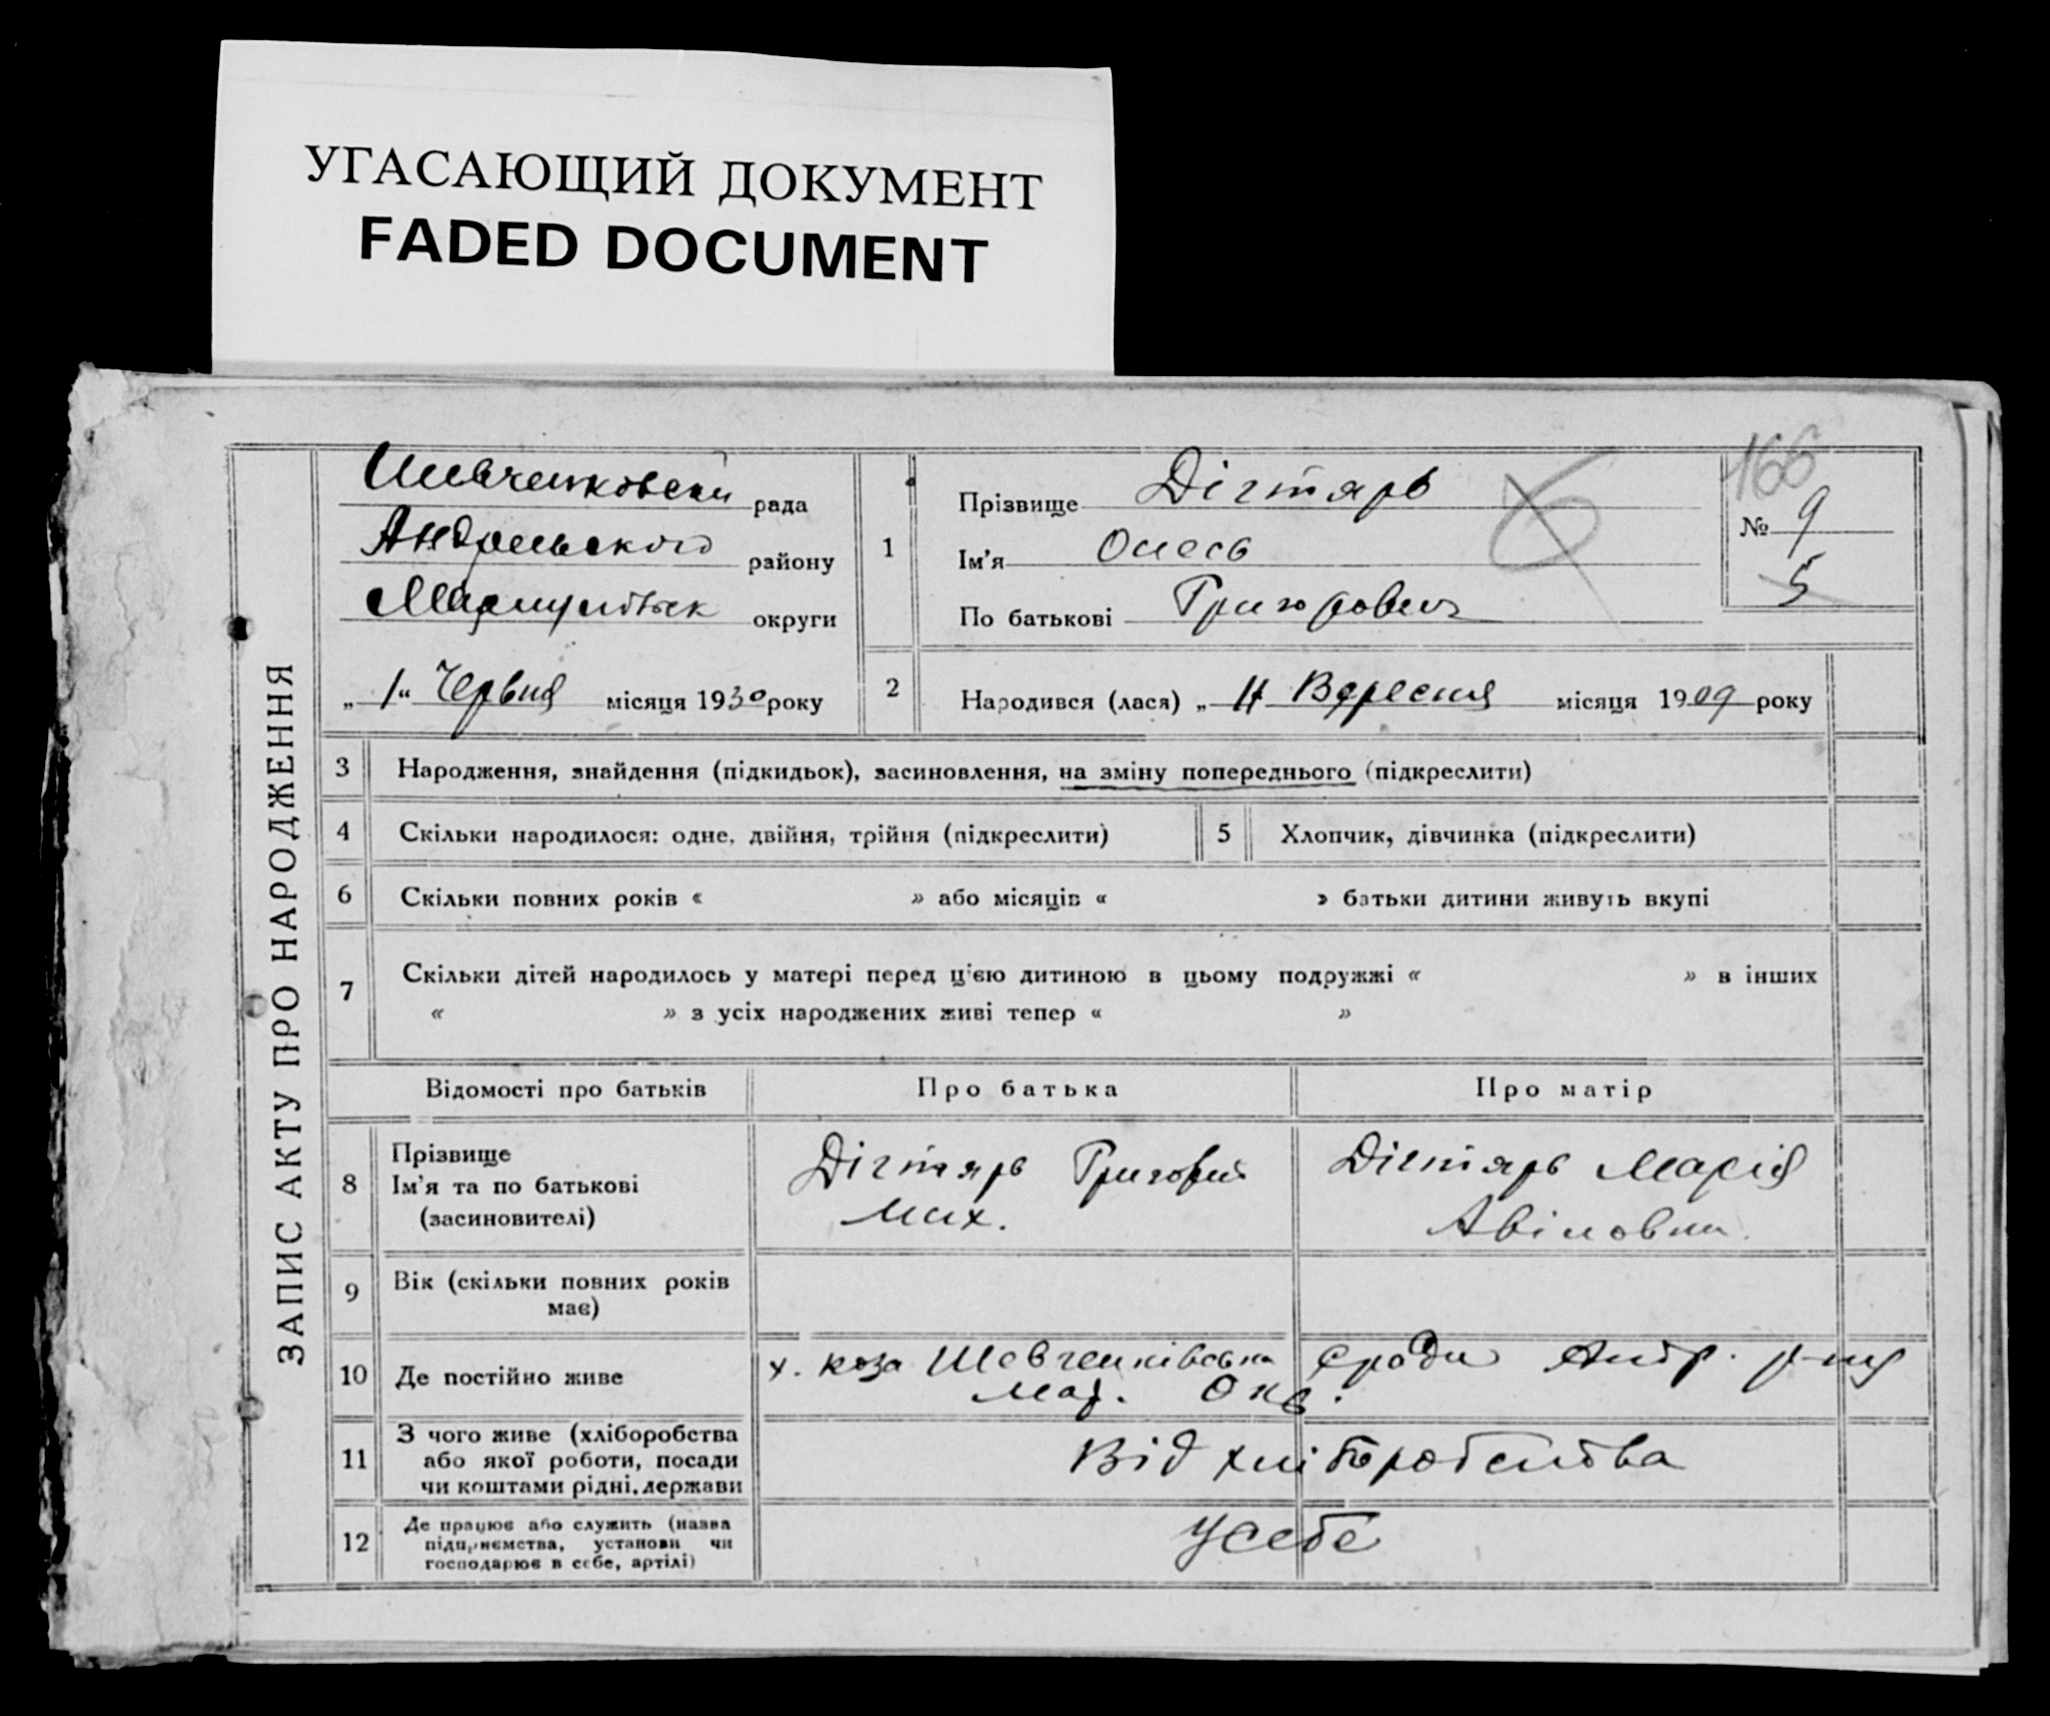 УГАСАЮЩИЙ ДОКУМЕНТ
FADED DOCUMENT
ЗАПИС АКТУ ПРО НАРОДЖЕННЯ
Шевченковськ рада
Андреевського району
округи
„ 1 “ Червня місяця 1930 року
1
Прізвище Дігтярь
Ім'я Олесь
По батькові Григорович
166
№ 9
5
2
Народився (лася) „ Вересня місяця 1909 року
3 Народження, знайдення (підкидьок), засиновлення, на зміну попереднього (підкреслити)
4 Скільки народилося: одне, двійня, трійня (підкреслити)
5 Хлопчик, дівчинка (підкреслити)
6 Скільки повних років « » або місяців « » батьки дитини живуть вкупі
7 Скільки дітей народилось у матері перед ц'єю дитиною в цьому подружжі « » в інших
« » з усіх народжених живі тепер « »
Відомості про батьків Про батька Про матір
8
Прізвище
Ім'я та по батькові
(засиновителі)
Дігтярь Григорий
Мих.
Дігтярь Марія
Авіловна
9
Вік (скільки повних років
має)
10 Де постійно живе
х. коза Шевченківська сради Андр. р-ну
Мар. Окр.
11
З чого живе (хліборобства
або якої роботи, посади
чи коштами рідні, держави
Від хліборобства
12
Де працює або служить (назва
підприємства, установи чи
господарює в себе, артілі)
У себе